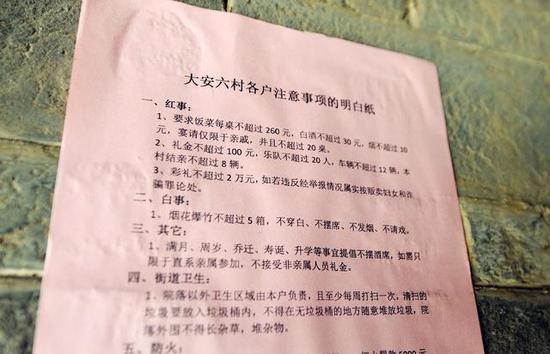 大安六村各户注意事项的明白纸
一、红事：
1、要求饭菜每桌不超过 260 元，白酒不超过 30 元，烟不超过 10
元，宴请仅限于亲戚，并且不超过 20 桌。
2、礼金不超过 100 元，乐队不超过 20 人，车辆不超过 12 辆，本
村结亲不超过 8 辆。
3、彩礼不超过 2 万元，如若违反经举报情况属实按贩卖妇女和诈
骗罪论处。
二、白事：
1、烟花爆竹不超过 5 箱，不穿白、不摆席、不发烟、不请戏。
三、其它：
1、满月、周岁、乔迁、寿诞、升学等事宜提倡不摆酒席，如需只
限于直系亲属参加，不接受非亲属人员礼金。
四、街道卫生：
1、院落以外卫生区域由本户负责，且至少每周打扫一次，清扫的
垃圾要放入垃圾桶内，不得在无垃圾桶的地方随意堆放垃圾，院
落外围不得长杂草，堆杂物。
五、防火：
5000